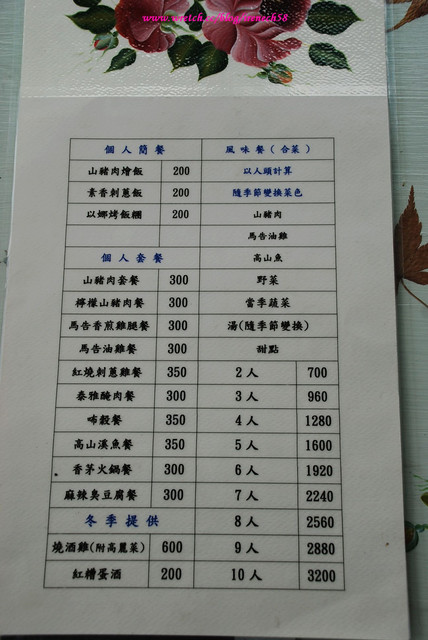 個人簡餐 風味餐(合菜)
山豬肉燴飯 200 以人頭計算
素香刺蔥飯 200 隨季節變換菜色
以娜烤飯糰 200 山豬肉
馬告油雞
個人套餐 高山魚
山豬肉套餐 300 野菜
檸檬山豬肉餐 300 當季蔬菜
馬告香煎雞腿餐 300 湯(隨季節變換)
馬告油雞餐 300 甜點
紅燒刺蔥雞餐 350 2人 700
泰雅醃肉餐 300 3人 960
布穀餐 350 4人 1280
高山溪魚餐 350 5人 1600
香茅火鍋餐 300 6人 1920
麻辣臭豆腐餐 300 7人 2240
冬季提供 8人 2560
燒酒雞(附高麗菜) 600 9人 2880
紅糟蛋酒 200 10人 3200